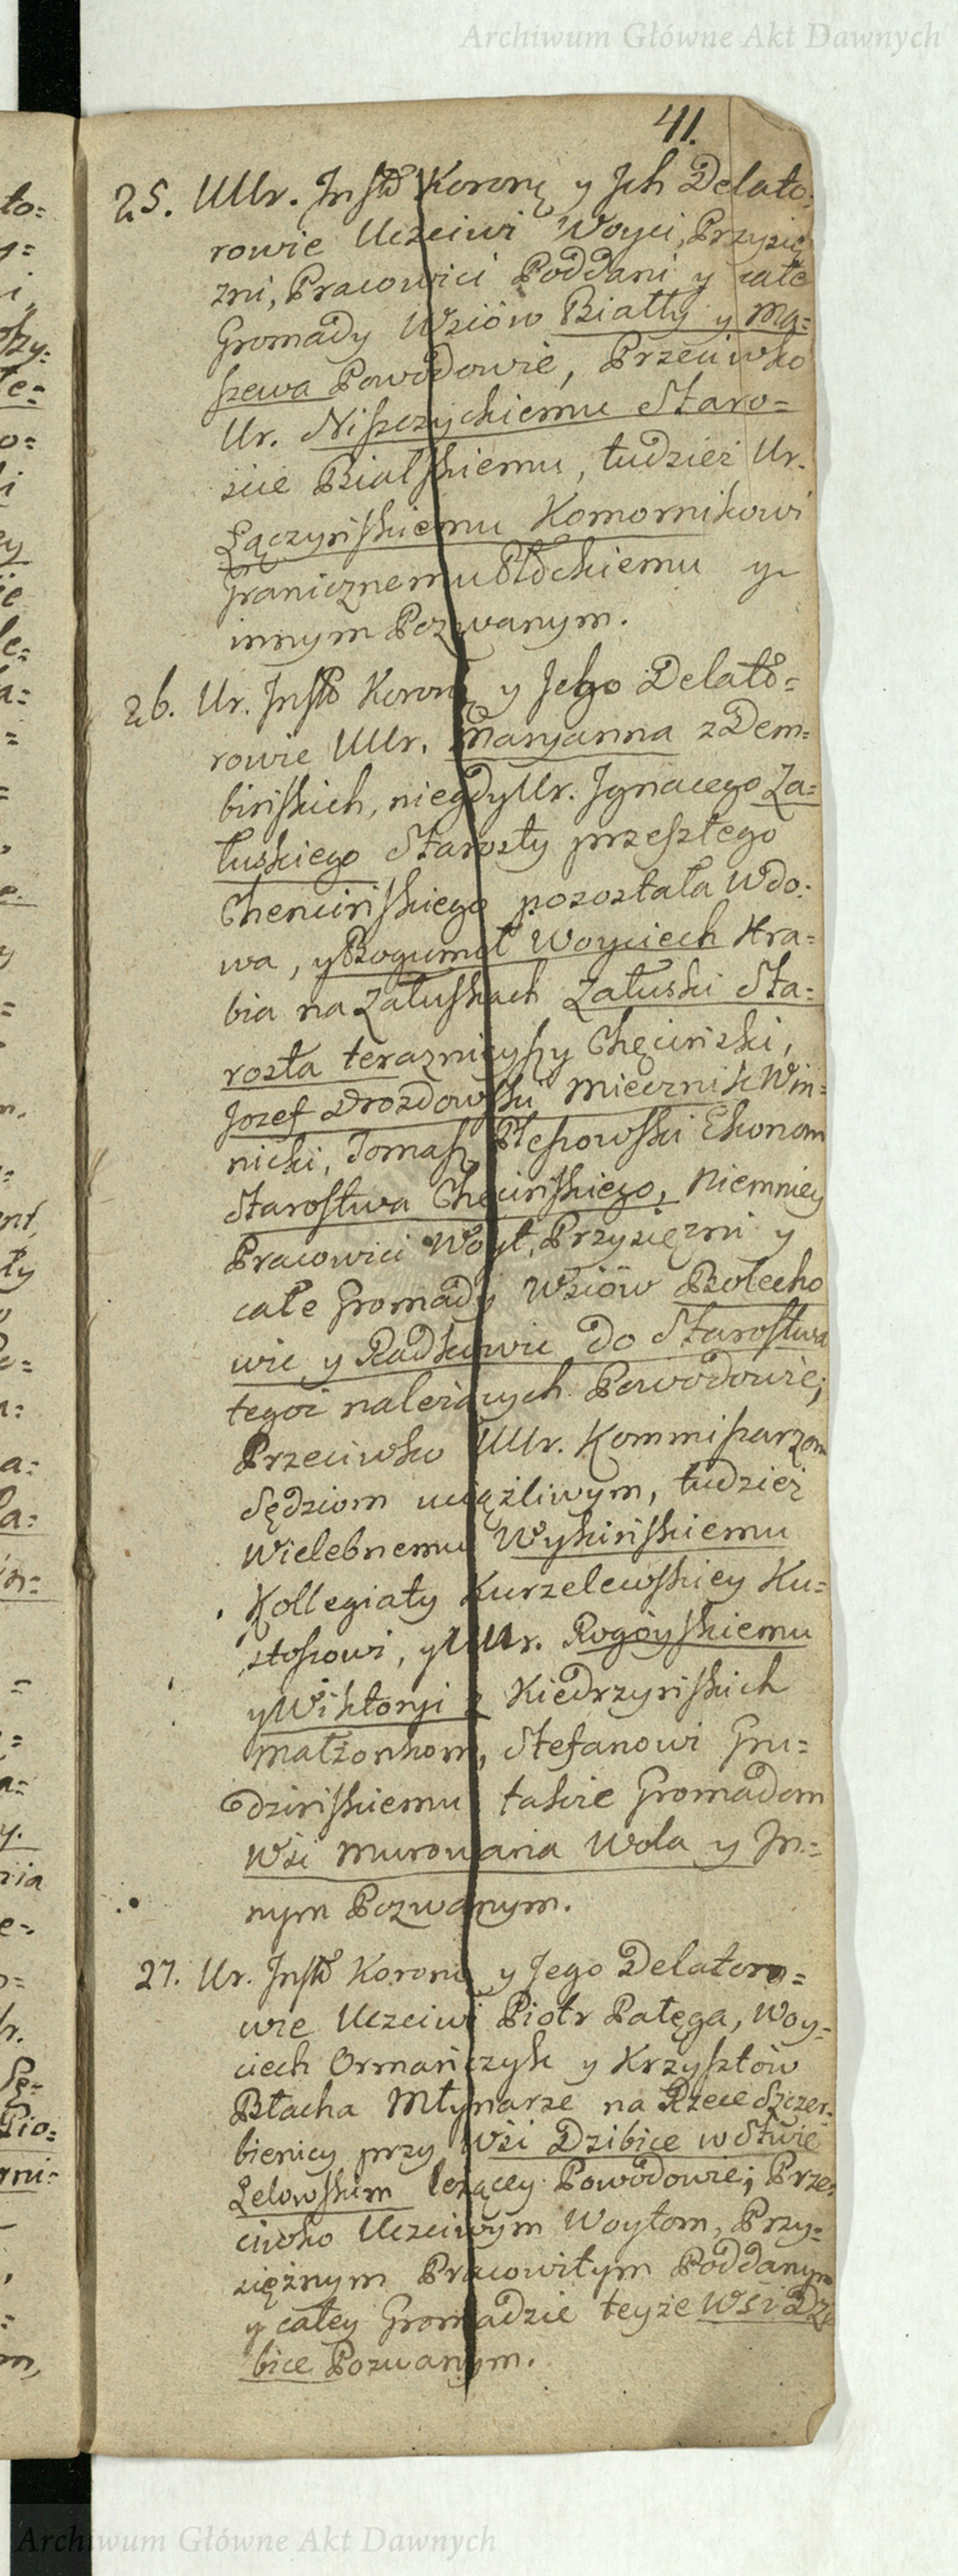 Archiwum Główne Akt Dawnych
41.
25. UUr. Inst: Koronę y Ich Delato:
rowie Uczciwi Woyci, Przysię
zni, Pracowici Poddani y całe
Gromady Wsiów Białły y Ma=
szewa Powodowie, Przeciwko
Ur. Niszczyckiemu Staro=
scie Bialskiemu, tudzież Ur.
Łączyńskiemu Komornikowi
Granicznemu Płockiemu y
innym Pozwanym.
26. Ur. Inst: Koronę y Jego Delato=
rowie UUr. Maryanna z Dem=
bińskich, niegdy Ur. Ignacego Za=
łuskiego Starosty przeszłego
Chencińskiego pozostała Wdo:
wa, y Bogumił Woyciech Hra=
bia na Załuskach Załuski Sta=
rosta teraznieyszy Chęciński,
Jozef Drozdowski Miecznik Win=
nicki, Tomasz Plesiowski Ekonom
Starostwa Chęcińskiego, Niemniey
Pracowici Woyt, Przysięzni y
całe Gromady Wsiów Bolecho
wic y Radkowic do Starostwa
tegoż należących Powodowie;
Przeciwko UUr. Kommissarzom
Sędziom uciążliwym, tudzież
Wielebnemu Wykińskiemu
Kollegiaty Kurzelewskiey Ku=
stosowi, y UUr. Rogoyskiemu
y Wiktoryi z Kiedrzyńskich
Małżonkom, Stefanowi Gru=
dzińskiemu także Gromadom
Wsi Murowana Wola y In=
nym Pozwanym.
27. Ur. Inst: Koronę y Jego Delatoro=
wie Uczciwi Piotr Pałęga, Woy=
ciech Ormańczyk y Krzysztow
Błacha Młynarze na Rzece Szczer:
bienicy przy Wsi Dzibice w Stwie
Lelowskim leżącey Powodowie; Prze:
ciwko Uczciwym Woytom, Przy=
siężnym Pracowitym Poddanym
y całey Gromadzie teyże Wsi Dzi
bice Pozwanym.
Archiwum Główne Akt Dawnych